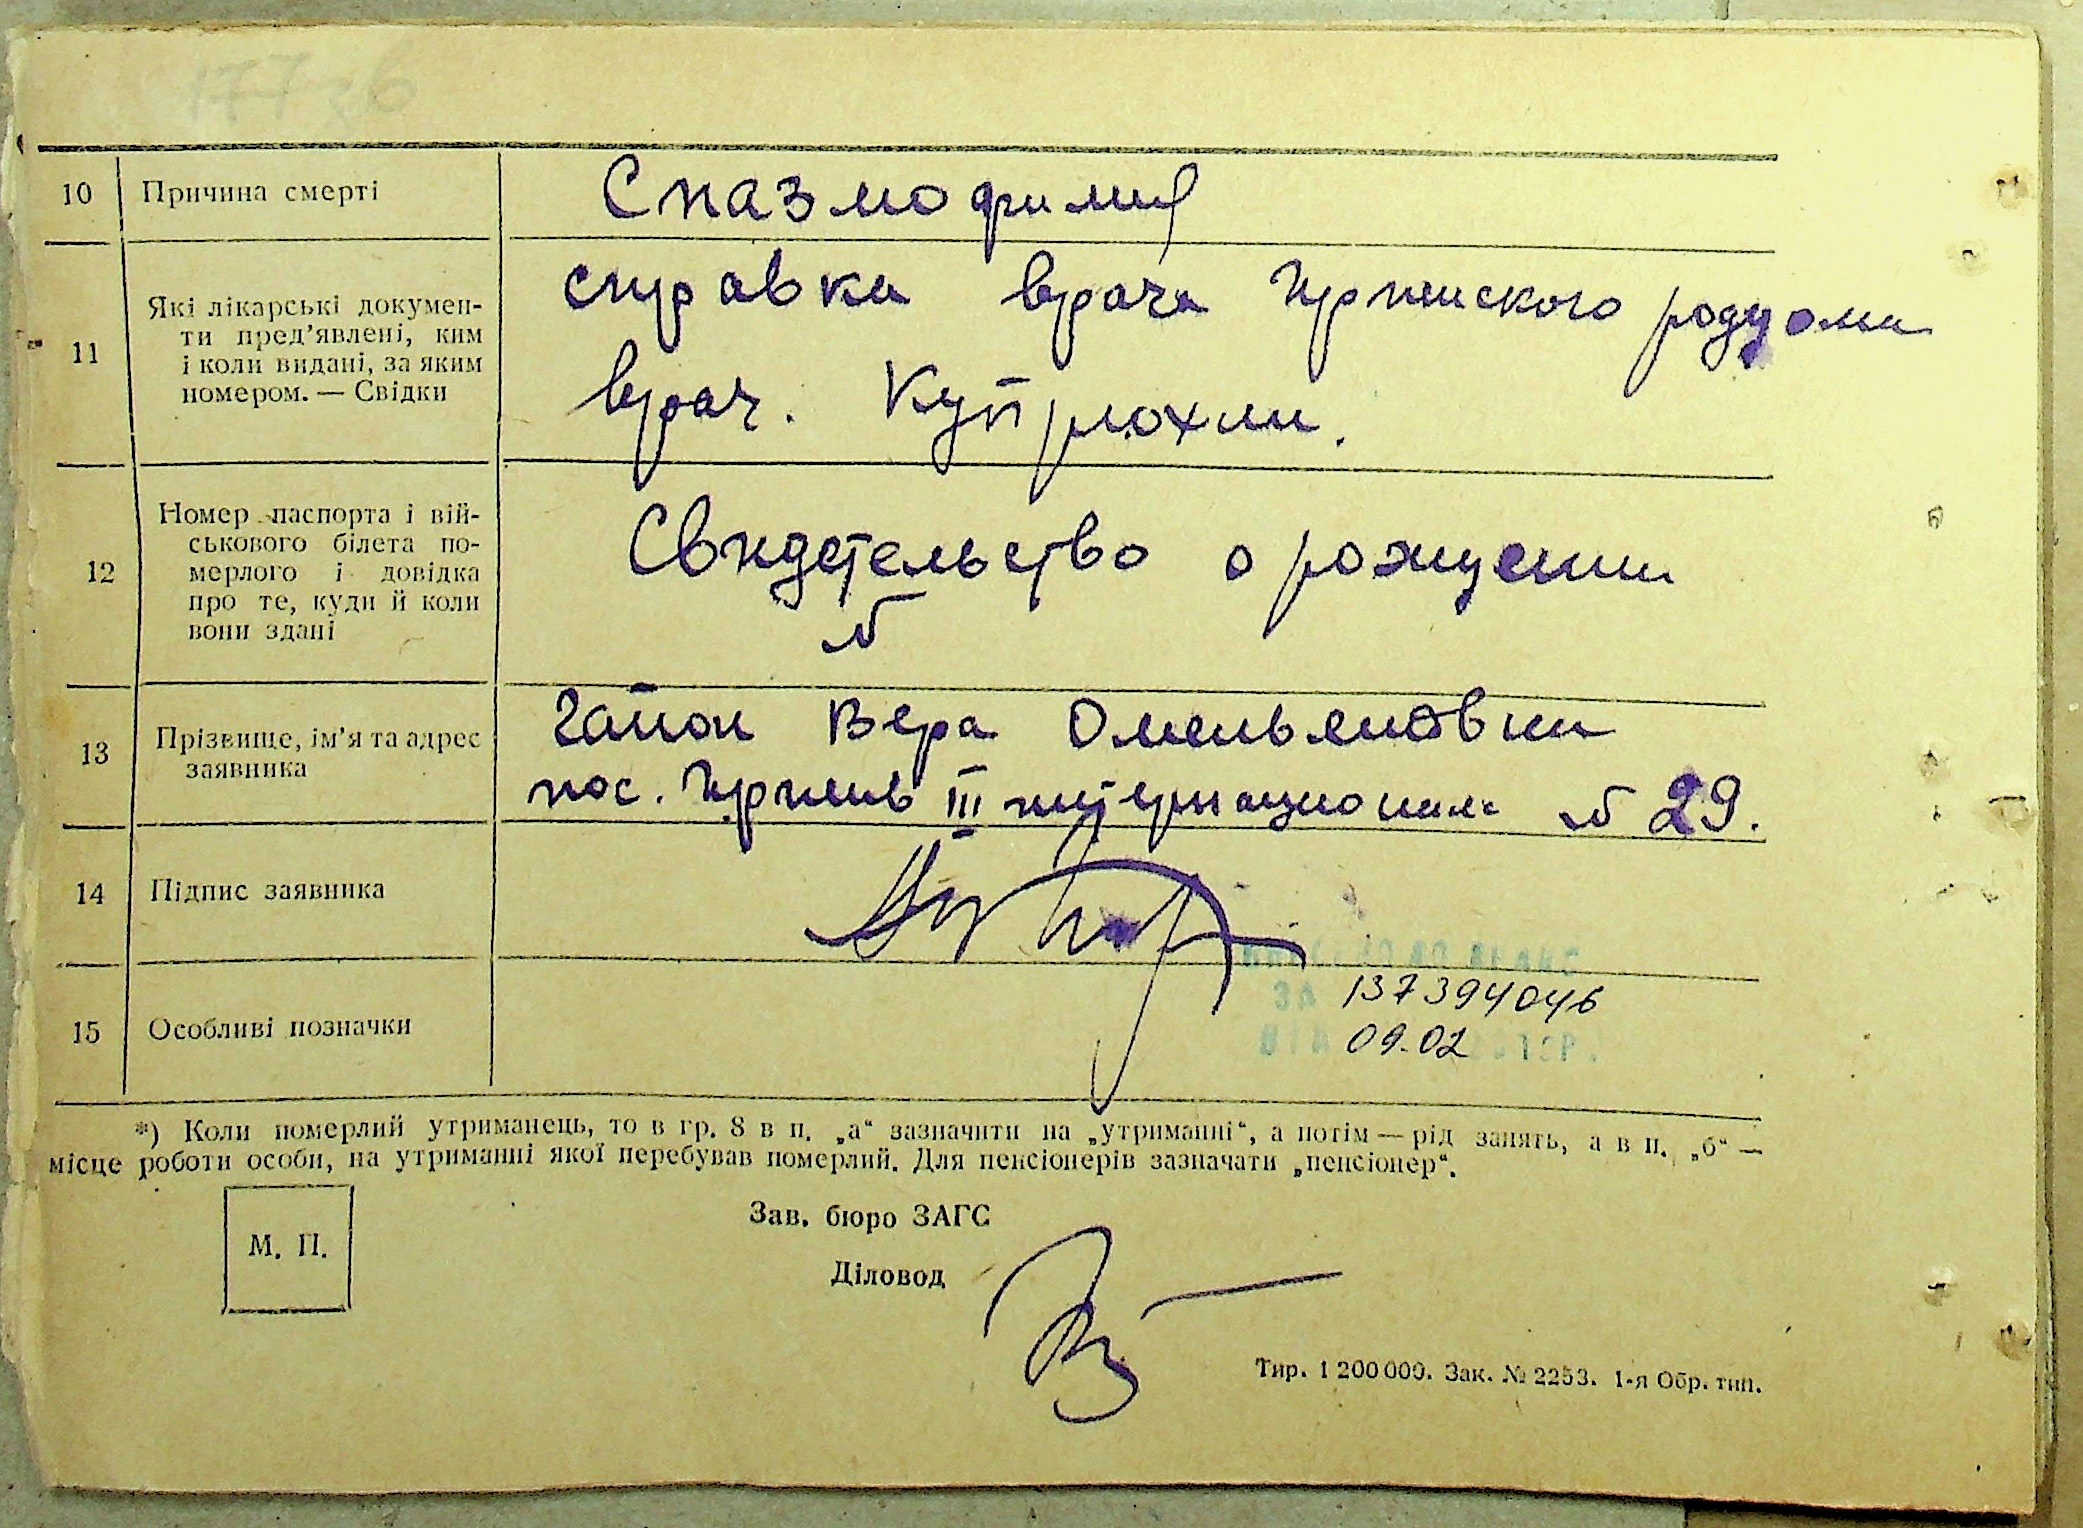 10 Причина смерті Спазмофилия
11 Які лікарські докумен-
ти пред'явлені, ким
і коли видані, за яким
номером. — Свідки
справка врача Ирпинского роддома
врач.
12 Номер паспорта і вій-
ськового білета по-
мерлого і довідка
про те, куди й коли
вони здані
Свидетельство о рождении
№
13 Прізвище, ім'я та адрес
заявника
Гапон Вера Омельяновна
пос. Ирпень III интернационала № 29.
14 Підпис заявника
15 Особливі позначки
137394046
09.02
*) Коли померлий утриманець, то в гр. 8 в п. „а“ зазначити на „утриманні“, а потім — рід занять, а в п. „б“ —
місце роботи особи, на утриманні якої перебував померлий. Для пенсіонерів зазначати „пенсіонер“.
М. П.
Зав. бюро ЗАГС
Діловод
Тир. 1 200 000. Зак. № 2253. 1-я Обр. тип.